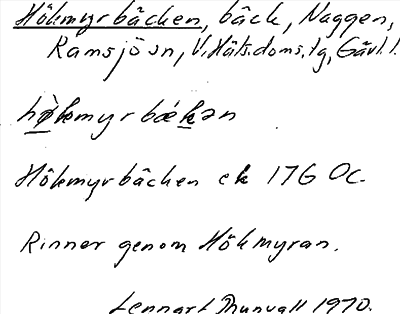 Hökmyrbäcken, bäck, Naggen,
Ramsjö sn, V. Häls. doms. tg, Gävl. l.
hø̀kmyrbækən
Hökmyrbäcken ek 17G 0c.
Rinner genom Hökmyran.
Lennart Thunvall 1970.